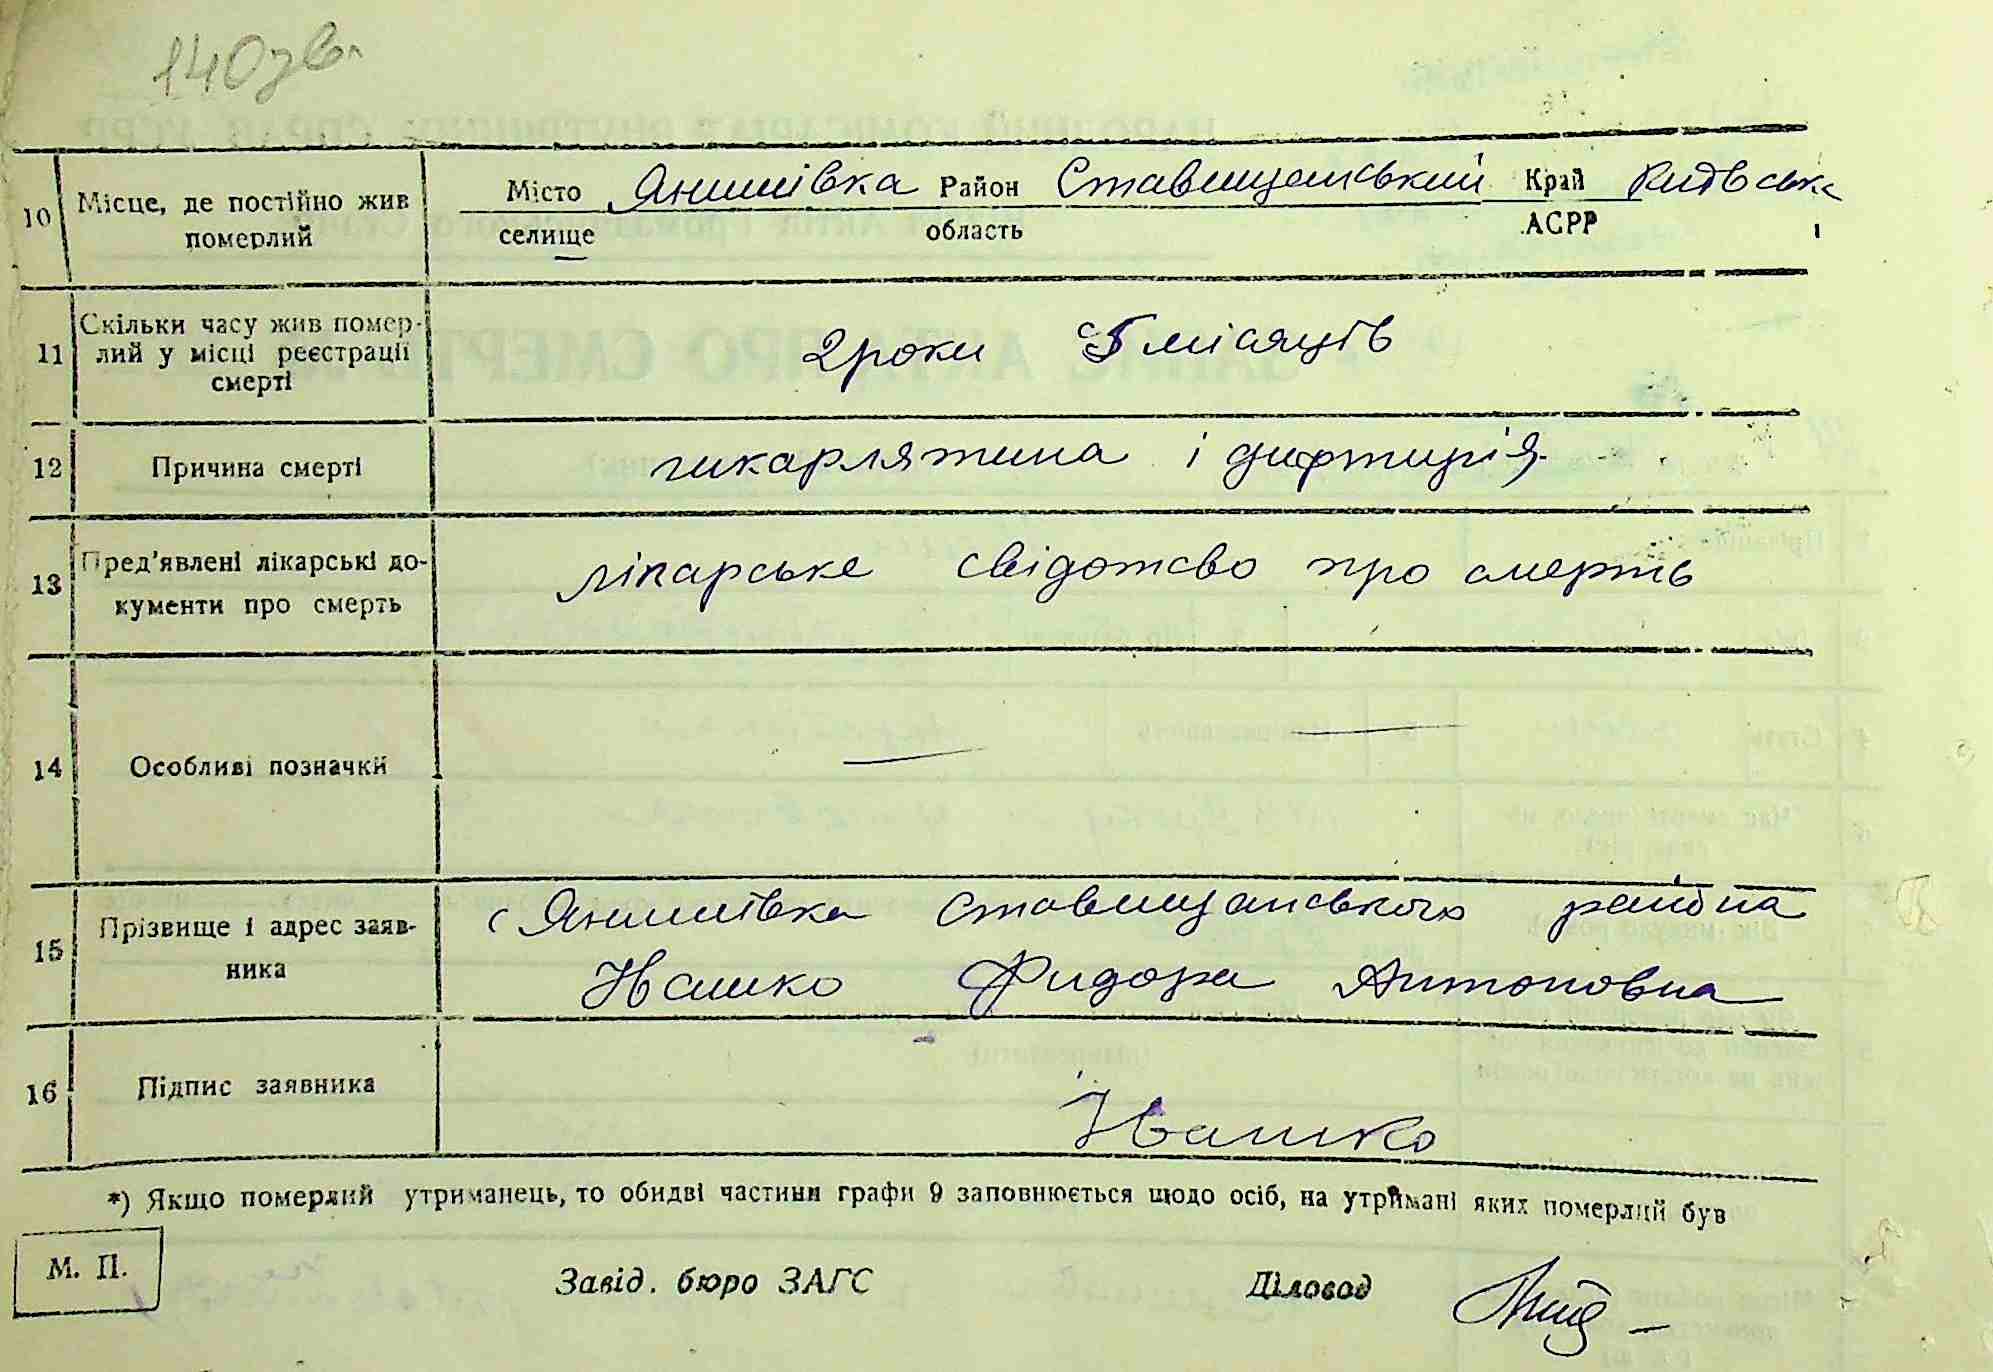 140зв.
10 Місце, де постійно жив померлий Місто селище Янишівка Район область Ставищанський Край АСРР Київська
11 Скільки часу жив помер-
лий у місці реєстрації
смерті
2 роки 5 місяців
12 Причина смерті шкарлятина і дифтирія
13 Пред'явлені лікарські до-
кументи про смерть
лікарське свідотсво про смерть
14 Особливі позначки — —
15 Прізвище і адрес заяв-
ника
с Янишівка Ставищанського района
Івашко Фидора Антоновна
16 Підпис заявника Івашко
*) Якщо померлий утриманець, то обидві частини графи 9 заповнюється щодо осіб, на утримані яких померлий був
М. П. Завід. бюро ЗАГС Діловод